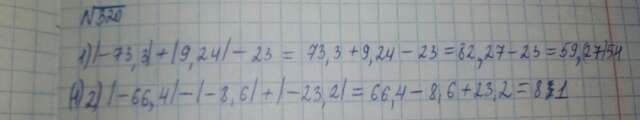 №320
1) |-73,3|+|9,24|-23 = 73,3+9,24-23=82,27-23=59,(27)54
(4) 2) |-66,4|-|-8,6|+|-23,2|=66,4-8,6+23,2=81